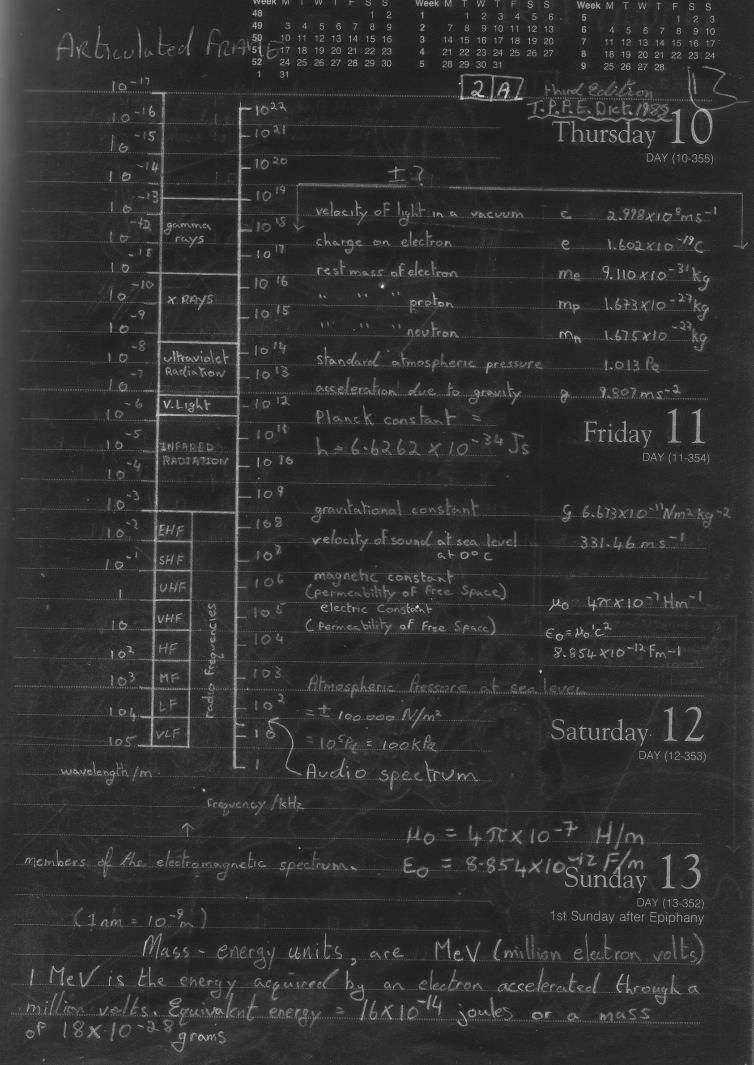 Week M T W T F S S
48 1 2
49 3 4 5 6 7 8 9
50 10 11 12 13 14 15 16
51 17 18 19 20 21 22 23
52 24 25 26 27 28 29 30
1 31
Week M T W T F S S
1 1 2 3 4 5 6
2 7 8 9 10 11 12 13
3 14 15 16 17 18 19 20
4 21 22 23 24 25 26 27
5 28 29 30 31
Week M T W T F S S
5 1 2 3
6 4 5 6 7 8 9 10
7 11 12 13 14 15 16 17
8 18 19 20 21 22 23 24
9 25 26 27 28
Articulated FRAME
2 A
third Edition
T.P.P.E. Dict. 1989
13
Thursday 10
DAY (10-355)
10⁻¹⁷
10⁻¹⁶
10⁻¹⁵
10⁻¹⁴
10⁻¹³
10⁻¹²
10⁻¹¹
10⁻¹⁰
10⁻⁹
10⁻⁸
10⁻⁷
10⁻⁶
10⁻⁵
10⁻⁴
10⁻³
10⁻²
10⁻¹
1
10
10²
10³
104
105
wavelength/m
gamma
rays
X RAYS
ultraviolet
Radiation
V.Light
INFARED
RADIATION
EHF
SHF
UHF
VHF
HF
MF
LF
VLF
radio frequencies
10²²
10²¹
10²⁰
10¹⁹
10¹⁸
10¹⁷
10¹⁶
10¹⁵
10¹⁴
10¹³
10¹²
10¹¹
10¹⁰
10⁹
108
10⁷
10⁶
10⁵
104
103
10²
10
1
Frequency/kHz
± ?
velocity of light in a vacuum c 2.998x10⁸ms⁻¹
charge on electron e 1.602x10⁻¹⁹C
rest mass of electron me 9.110x10⁻³¹kg
" " " proton mp 1.673x10⁻²⁷kg
" " " neutron mn 1.675x10⁻²⁷kg
standard atmospheric pressure 1.013 Pa
acceleration due to gravity g 9.807ms⁻²
Planck constant =
h = 6.6262 x 10⁻³⁴ Js
Friday 11
DAY (11-354)
gravitational constant G 6.673x10⁻¹¹Nm²kg⁻²
velocity of sound at sea level 331.46 ms⁻¹
at 0°C
magnetic constant
(permeability of Free Space) μ₀ 4πx10⁻⁷Hm⁻¹
electric Constant
(Permeability of Free Space) ε₀=μ₀⁻¹c²
8.854x10⁻¹²Fm-1
Atmospheric Pressure at sea level
= ± 100.000 N/m²
= 10⁵Pa = 100kPa
Audio spectrum
Saturday 12
DAY (12-353)
μ₀ = 4π x 10⁻⁷ H/m
members of the electromagnetic spectrum.
ε₀ = 8.854x10⁻¹² F/m
Sunday 13
DAY (13-352)
1st Sunday after Epiphany
(1nm = 10⁻⁹m)
Mass-energy units, are MeV (million electron volts)
1 MeV is the energy acquired by an electron accelerated through a
million volts. Equivalent energy = 16x10⁻¹⁴ joules or a mass
of 18x10-28 grams